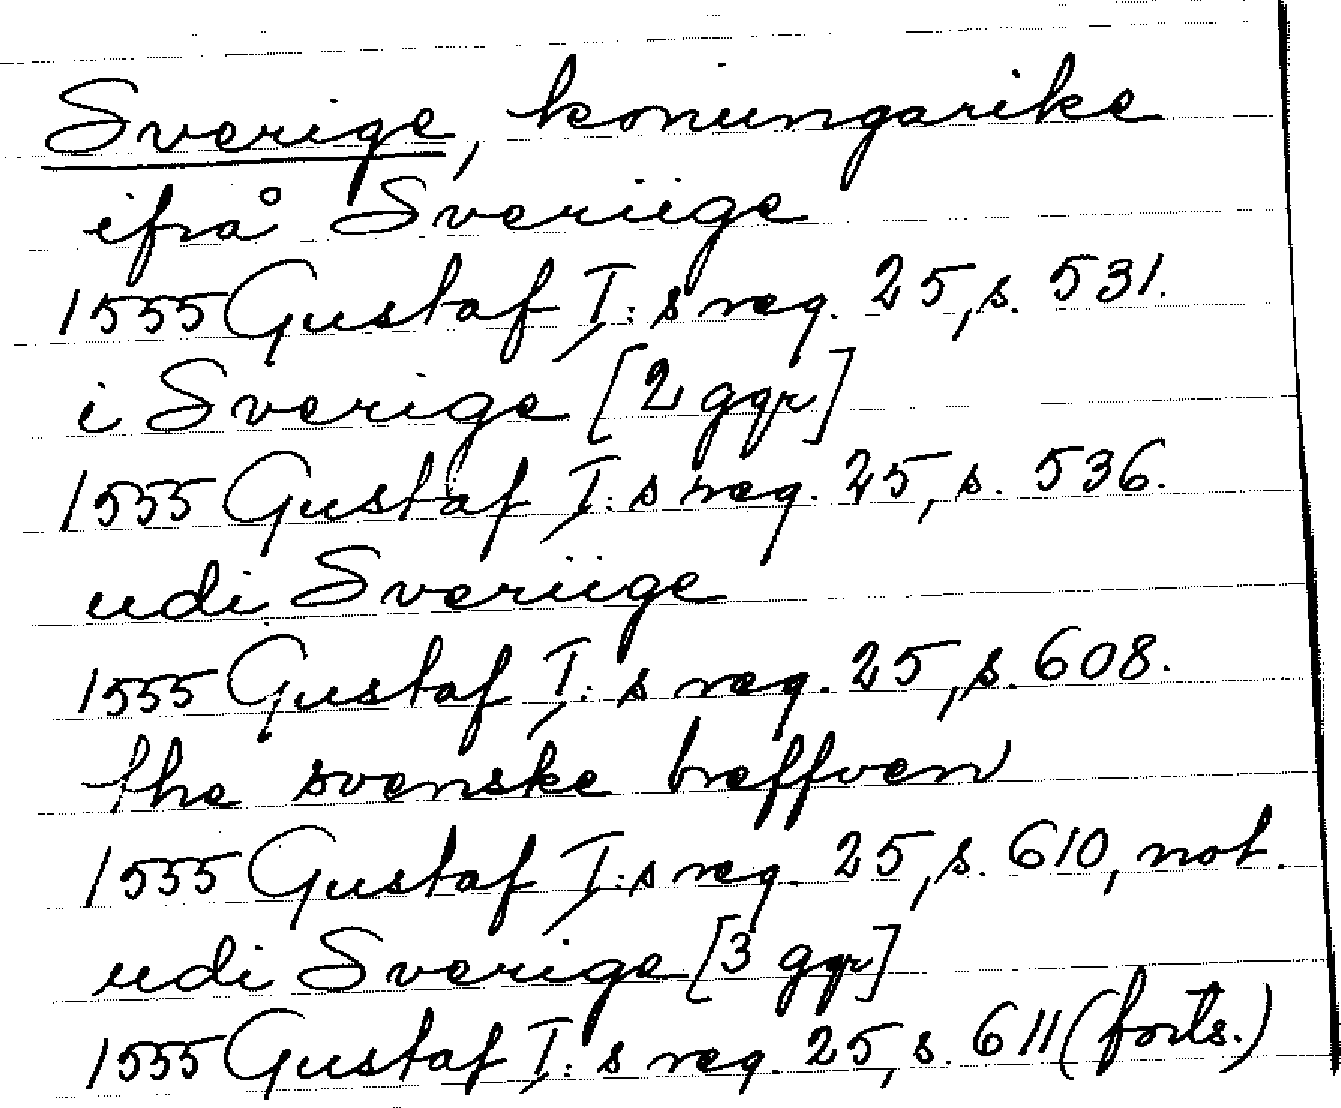 Sverige, konungarike
ifrå Sveriige
1555 Gustaf I:s reg. 25, s. 531.
i Sverige [2 ggr]
1555 Gustaf I:s reg. 25, s. 536.
udi Sveriige
1555 Gustaf I:s reg. 25, s. 608.
the svenske breffven
1555 Gustaf I:s reg. 25, s. 610, not.
udi Sverige [3 ggr]
1555 Gustaf I:s reg. 25, s. 611 (forts.)